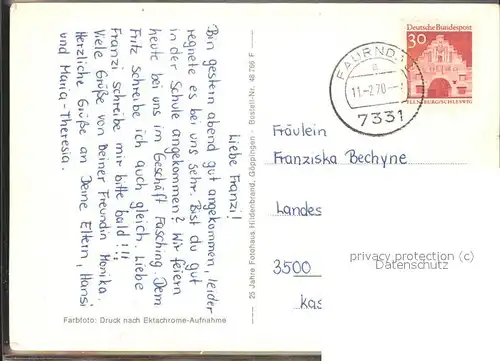 Liebe Franzi!
Bin gestern abend gut angekommen, leider
regnete es bei uns sehr. Bist du gut
in der Schule angekommen? Wir feiern
heute bei uns im Geschäft Fasching. Dem
Fritz schreibe ich auch gleich. Liebe
Franzi schreibe mir bitte bald!!!
Viele Grüße von Deiner Freundin Monika.
Herzliche Grüße an Deine Eltern, Hansi
und Maria-Theresia.
Farbfoto: Druck nach Ektachrome-Aufnahme
25 Jahre Fotohaus Hildenbrand, Göppingen - Bestell-Nr. 48 769 F
Deutsche Bundespost
30
FLENSBURG/SCHLESWIG
FAURND
a
11-2.70
7331
Fräulein
Franziska Bechyne
Landes
3500
Kas
privacy protection (c)
Datenschutz